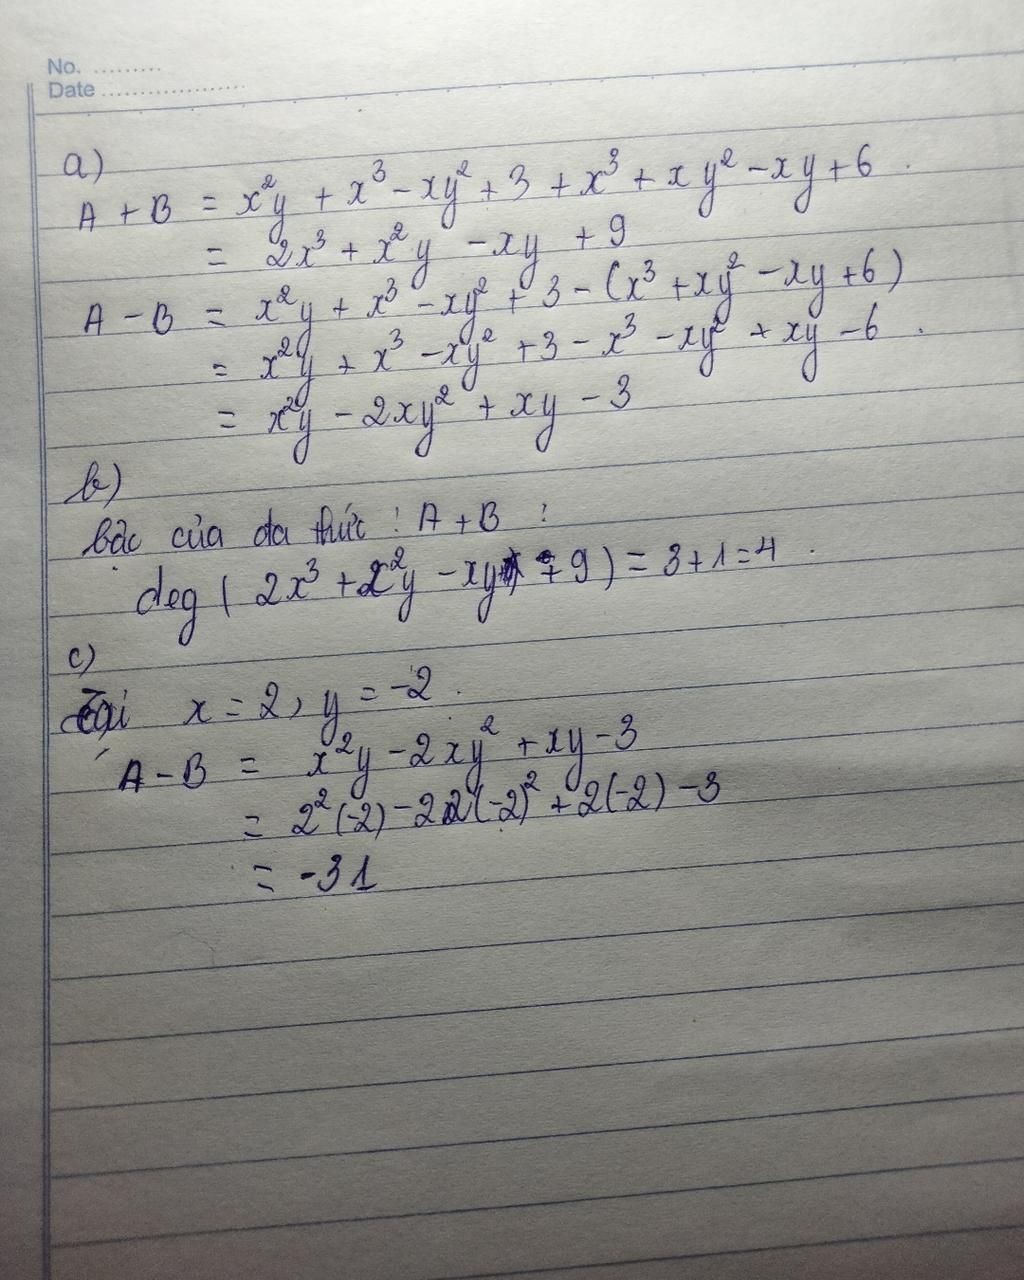 No. .........
Date ..................
a)
A + B = x²y + x³ - xy² + 3 + x³ + xy² - xy + 6 .
= 2x³ + x²y - xy + 9
A - B = x²y + x³ - xy² + 3 - (x³ + xy² - xy + 6)
= x²y + x³ - xy² + 3 - x³ - xy² + xy - 6 .
= x²y - 2xy² + xy - 3
b)
bậc của đa thức : A + B :
deg ( 2x³ + x²y - xy + 9 ) = 3 + 1 = 4 .
c)
Tại x = 2, y = -2 .
A - B = x²y - 2xy² + xy - 3
= 2²(-2) - 2 2(-2)² + 2(-2) - 3
= -31